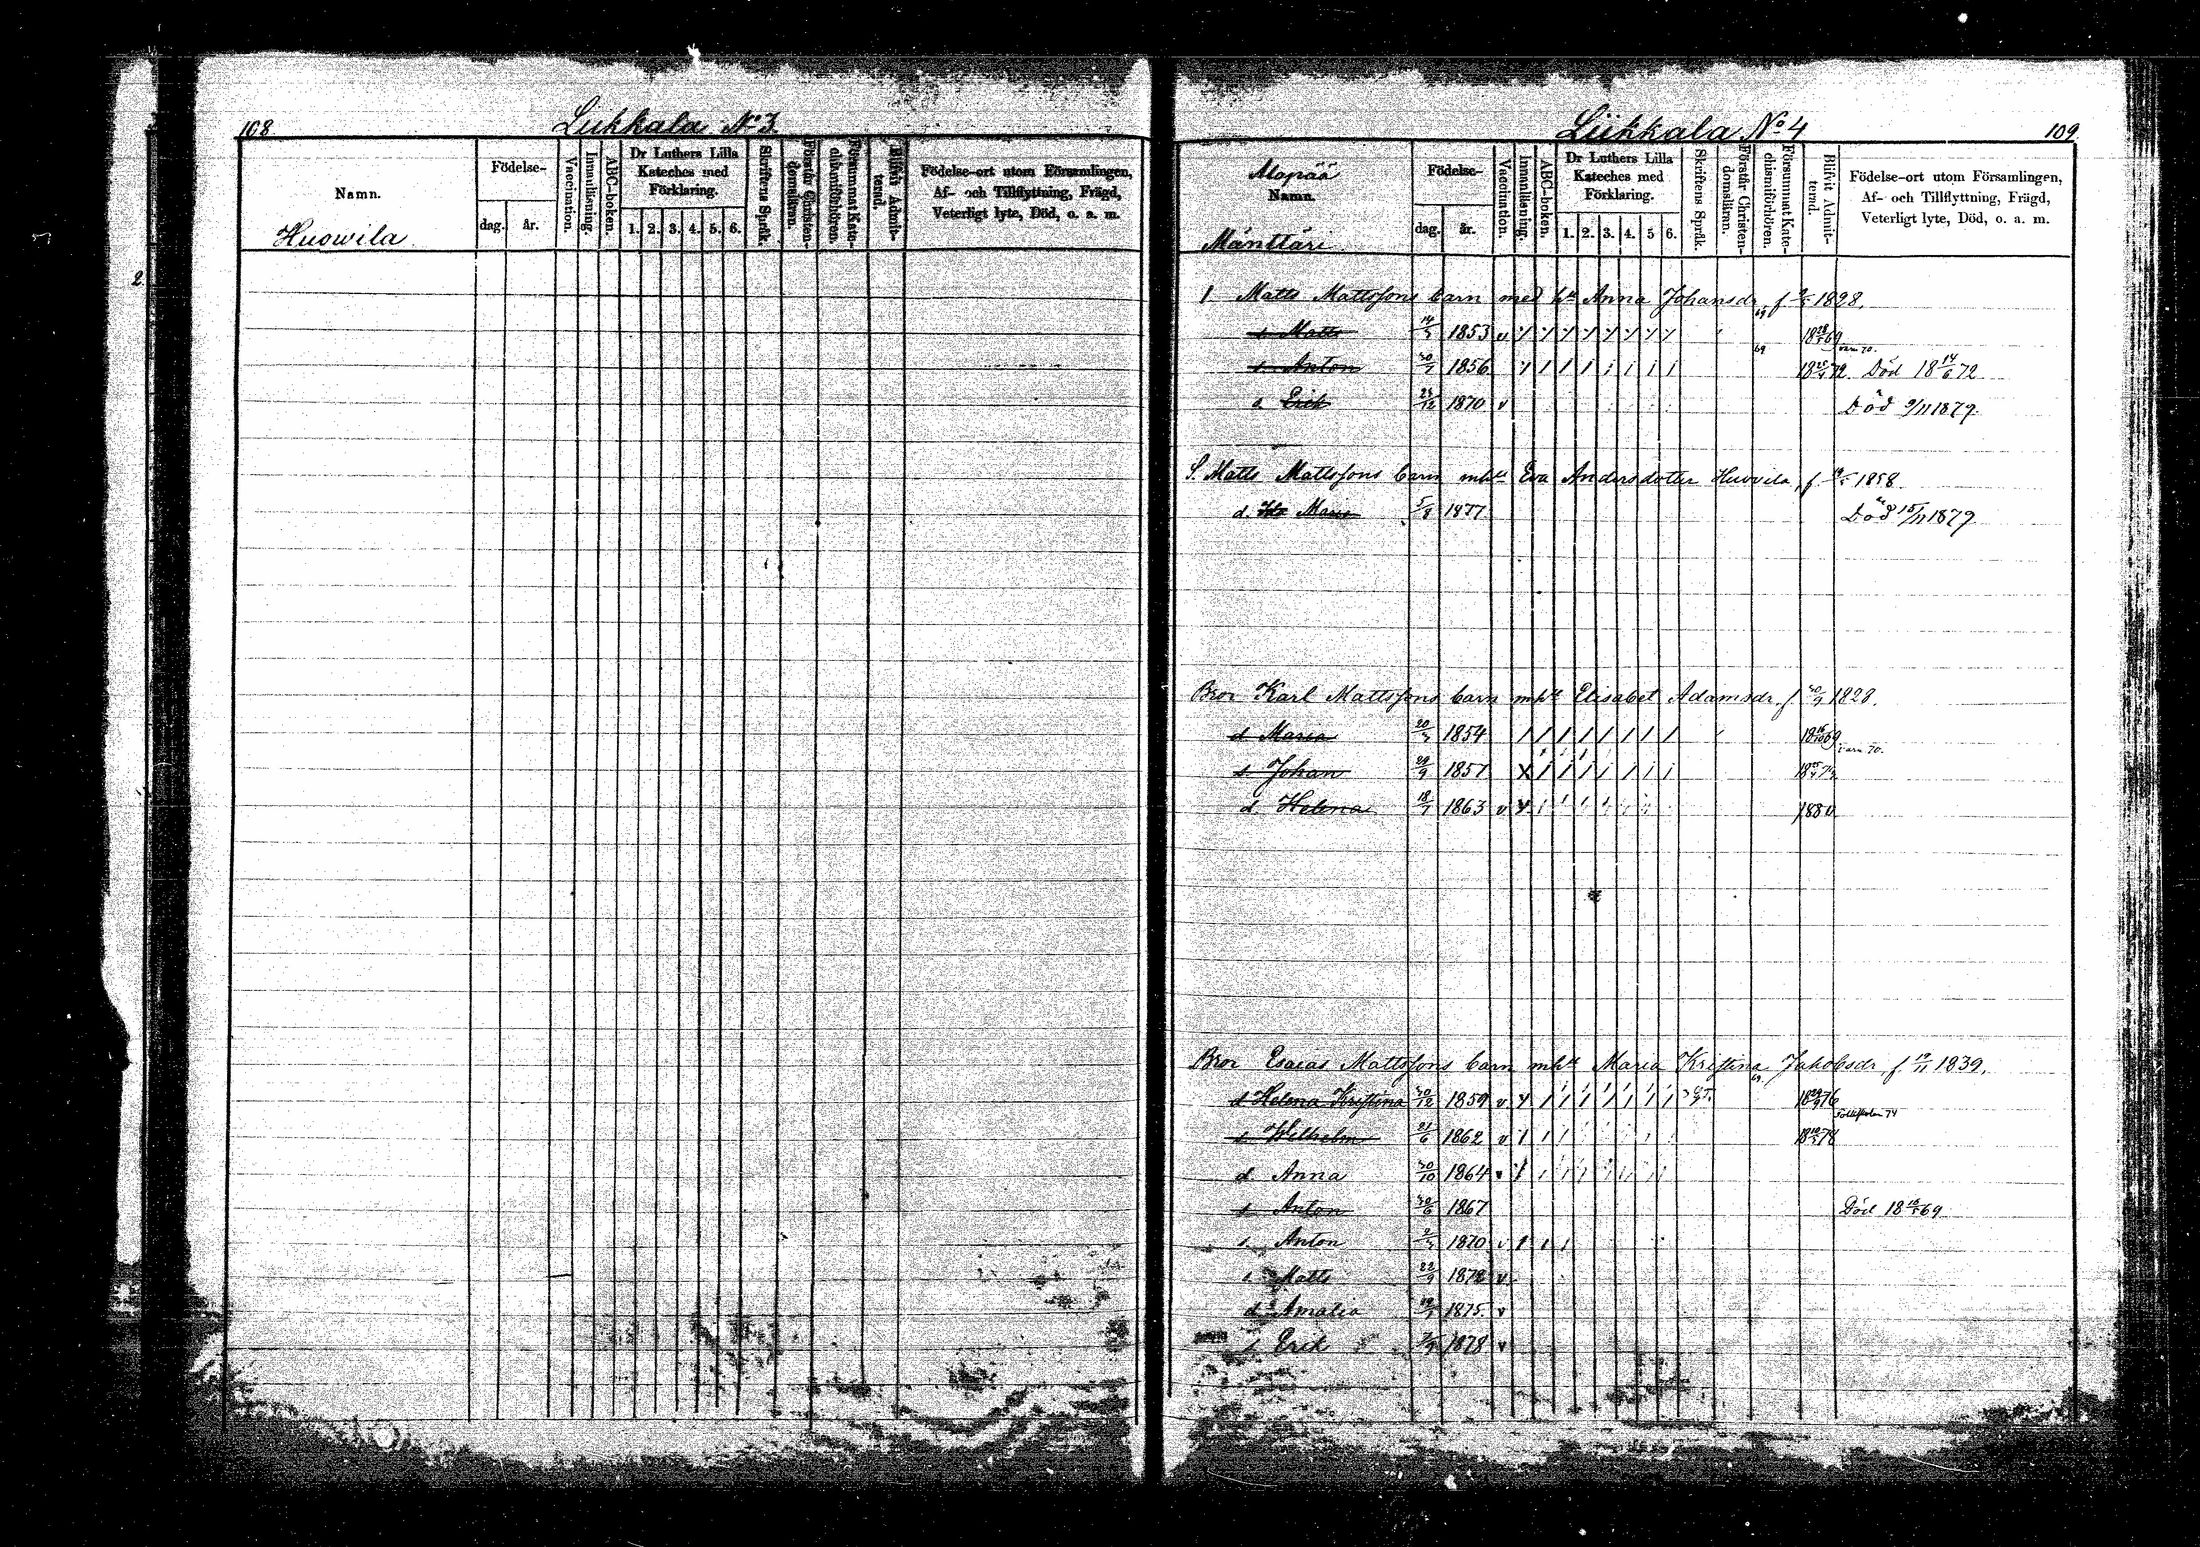 108
Liikkala No 3.
Namn.
Huowila
Födelse-
dag. år.
Vaccination.
Innanläsning.
ABC-boken.
Dr Luthers Lilla
Kateches med
Förklaring.
1. 2. 3. 4. 5. 6.
Skriftens Språk.
Förstår Christen-
domsläran.
Försummat Kate-
chismiförhören.
Blifvit Admit-
terad.
Födelse-ort utom Församlingen,
Af- och Tillflyttning, Frägd,
Veterligt lyte, Död, o. a. m.
2
Liikkala No 4
109
Alapää
Namn.
Mänttäri
Födelse-
dag. år.
Vaccination.
Innanläsning.
ABC-boken.
Dr Luthers Lilla
Kateches med
Förklaring.
1. 2. 3. 4. 5 6.
Skriftens Språk.
Förstår Christen-
domsläran.
Försummat Kate-
chismiförhören.
Blifvit Admit-
terad.
Födelse-ort utom Församlingen,
Af- och Tillflyttning, Frägd,
Veterligt lyte, Död, o. a. m.
1 Matts Mattssons barn med h. Anna Johansdr, f 1828.
s. Matts 1853 v 69
s. Anton 1856 69 Död 18 14/6 72
s. Erik 23/12 1870 v Död 9/11 1879.
S. Matts Mattssons barn mht Eva Andersdotter Huovila, f 1858.
d. Maria 5/8 1877. Död 15/11 1879
Bror Karl Mattssons barn mht Elisabet Adamsdr, f 30/9 1828.
d Maria 1854
s. Johan 29/9 1857
d. Helena 18/7 1863 v 1880
Bror Esaias Mattssons barn mht Maria Kristina Jakobsdr, f 19/11 1839.
d Helena Kristina 30/12 1859 v 69
s. Wilhelm 21/6 1862 v
d. Anna 30/10 1864 v
s Anton 30/6 1867 Död 18 69
s. Anton 1870 v
s Matts 22/9 1872 v
d Amalia 1875. v
s Erik 1878 v